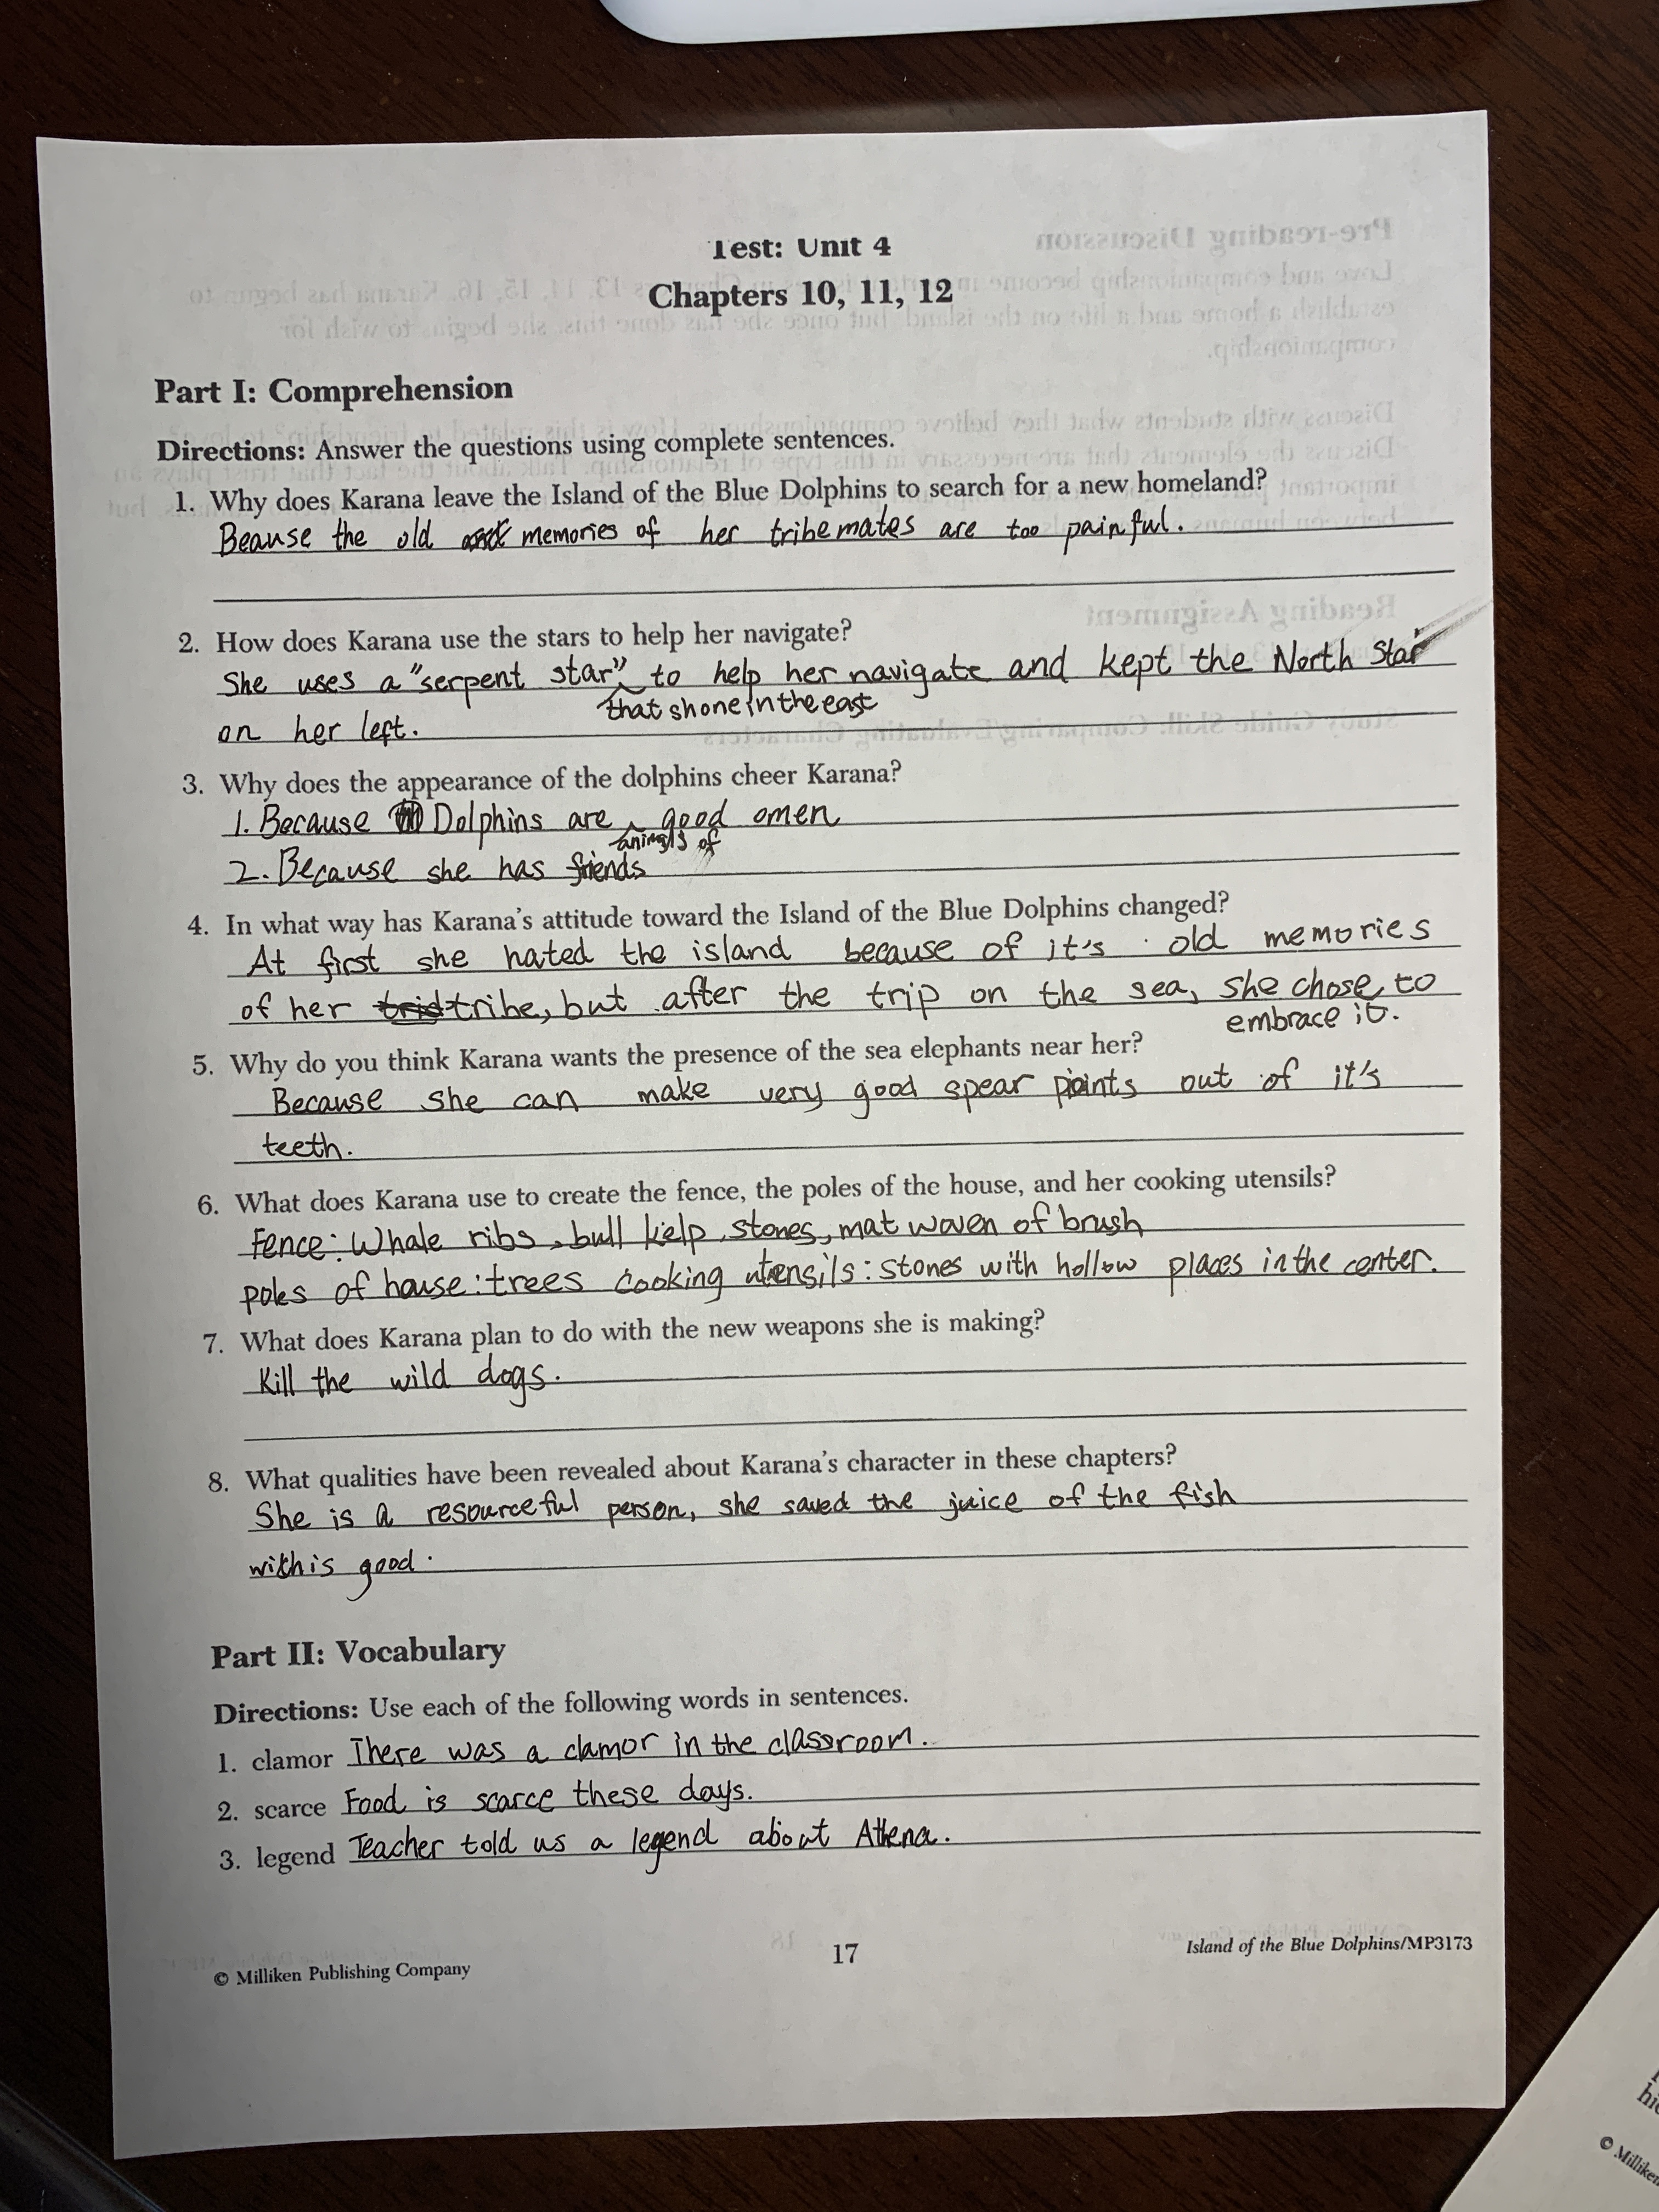 Test: Unit 4
Chapters 10, 11, 12
Part I: Comprehension
Directions: Answer the questions using complete sentences.
1. Why does Karana leave the Island of the Blue Dolphins to search for a new homeland?
Because the old memories of her tribemates are too painful.
2. How does Karana use the stars to help her navigate?
She uses a "serpent star" to help her navigate and kept the North Star
that shone in the east
on her left.
3. Why does the appearance of the dolphins cheer Karana?
1. Because Dolphins are good omen
animals of
2. Because she has friends
4. In what way has Karana's attitude toward the Island of the Blue Dolphins changed?
At first she hated the island because of it's old memories
of her tribe, but after the trip on the sea, she chose to
embrace it.
5. Why do you think Karana wants the presence of the sea elephants near her?
Because she can make very good spear points out of it's
teeth.
6. What does Karana use to create the fence, the poles of the house, and her cooking utensils?
Fence: Whale ribs, bull kelp, stones, mat woven of brush
poles of house: trees cooking utensils: stones with hollow places in the center.
7. What does Karana plan to do with the new weapons she is making?
Kill the wild dogs.
8. What qualities have been revealed about Karana's character in these chapters?
She is a resourceful person, she saved the juice of the fish
with is good.
Part II: Vocabulary
Directions: Use each of the following words in sentences.
1. clamor There was a clamor in the classroom.
2. scarce Food is scarce these days.
3. legend Teacher told us a legend about Athena.
© Milliken Publishing Company
17
Island of the Blue Dolphins/MP3173